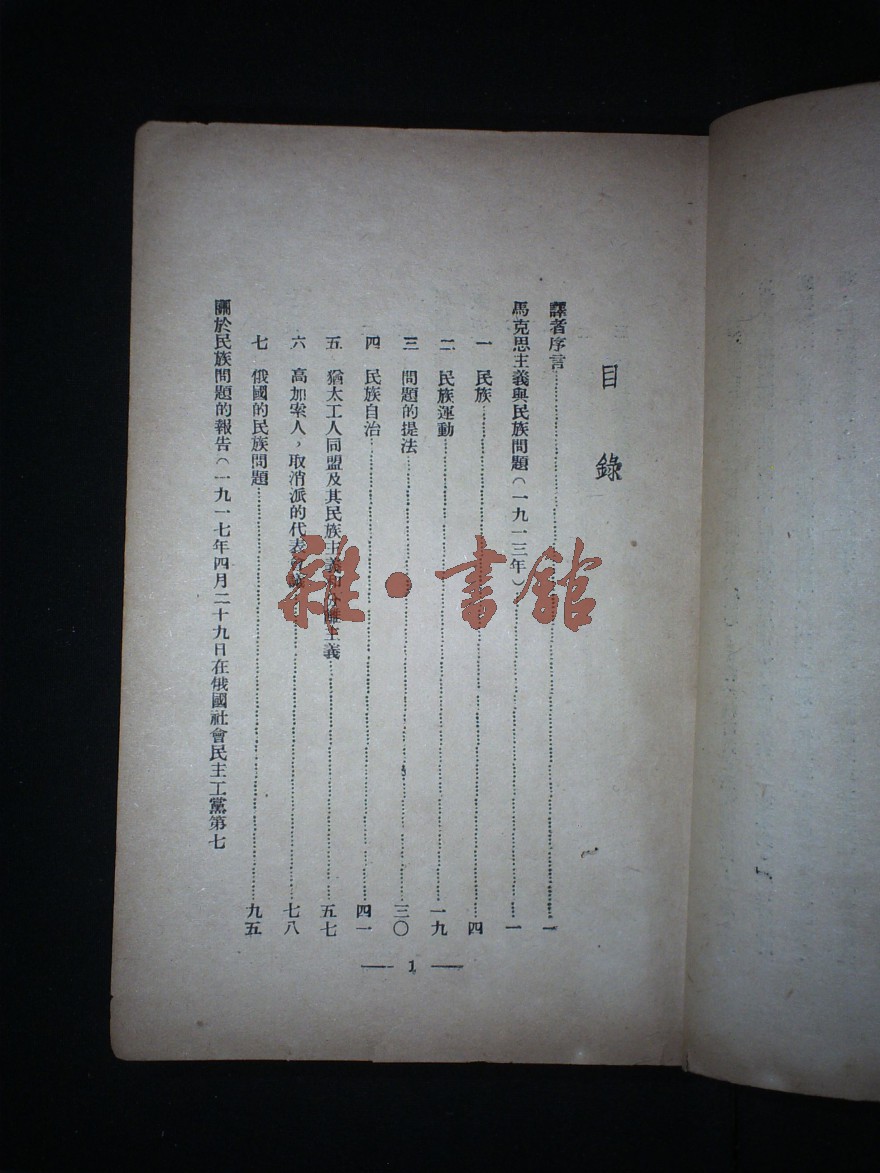 目錄
譯者序言……一
馬克思主義與民族問題(一九一三年)……一
一 民族……四
二 民族運動……一九
三 問題的提法……三〇
四 民族自治……四一
五 猶太工人同盟及其民族主義和分離主義……五七
六 高加索人,取消派的代表……七八
七 俄國的民族問題……九五
關於民族問題的報告(一九一七年四月二十九日在俄國社會民主工黨第七
— 1 —
雜·書館